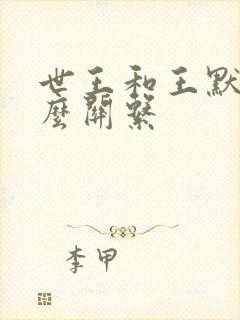 世王和王默
麼關繫
李甲